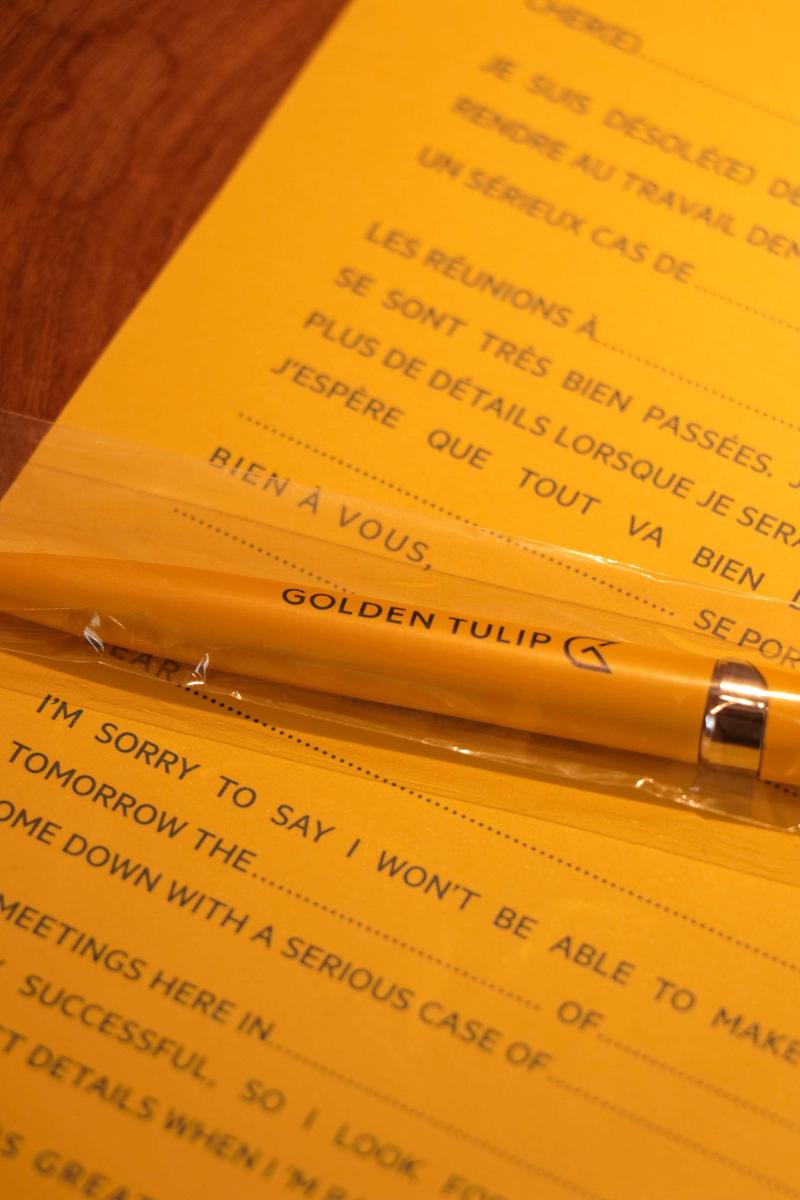 CHER(E)
JE SUIS DÉSOLÉ(E) DE
RENDRE AU TRAVAIL DEM
UN SÉRIEUX CAS DE
LES RÉUNIONS À
SE SONT TRÈS BIEN PASSÉES. J
PLUS DE DÉTAILS LORSQUE JE SERA
J'ESPÈRE QUE TOUT VA BIEN
SE POR
BIEN À VOUS,
GOLDEN TULIP
EAR
I'M SORRY TO SAY I WON'T BE ABLE TO MAKE
TOMORROW THE OF
OME DOWN WITH A SERIOUS CASE OF
MEETINGS HERE IN
Y SUCCESSFUL, SO I LOOK FO
CT DETAILS WHEN I'M BA
GREAT